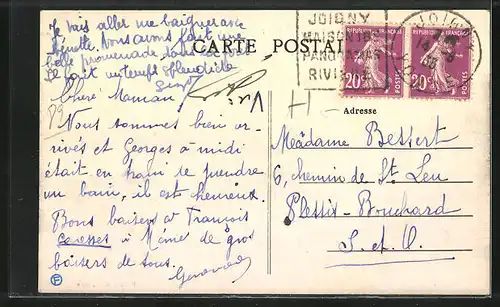 Je vais aller me baigner avec
Minette. Nous avons fait une
belle promenade tous ce
Il fait un temps splendide
CARTE POSTALE
JOIGNY
PANORAMAS
RIVI
JOIGNY
RÉPUBLIQUE FRANÇAISE
20c POSTES
RÉPUBLIQUE FRANÇAISE
20c POSTES
Adresse
Chère Maman,
Nous sommes bien ar-
rivés et Georges à midi
était en train de prendre
un bain, il est heureux.
Bons baisers à François
caresses à Mémé de gros
baisers de tous.
Madame Bessert
6, chemin de St Leu
Plessis-Bouchard
S.-et-O.